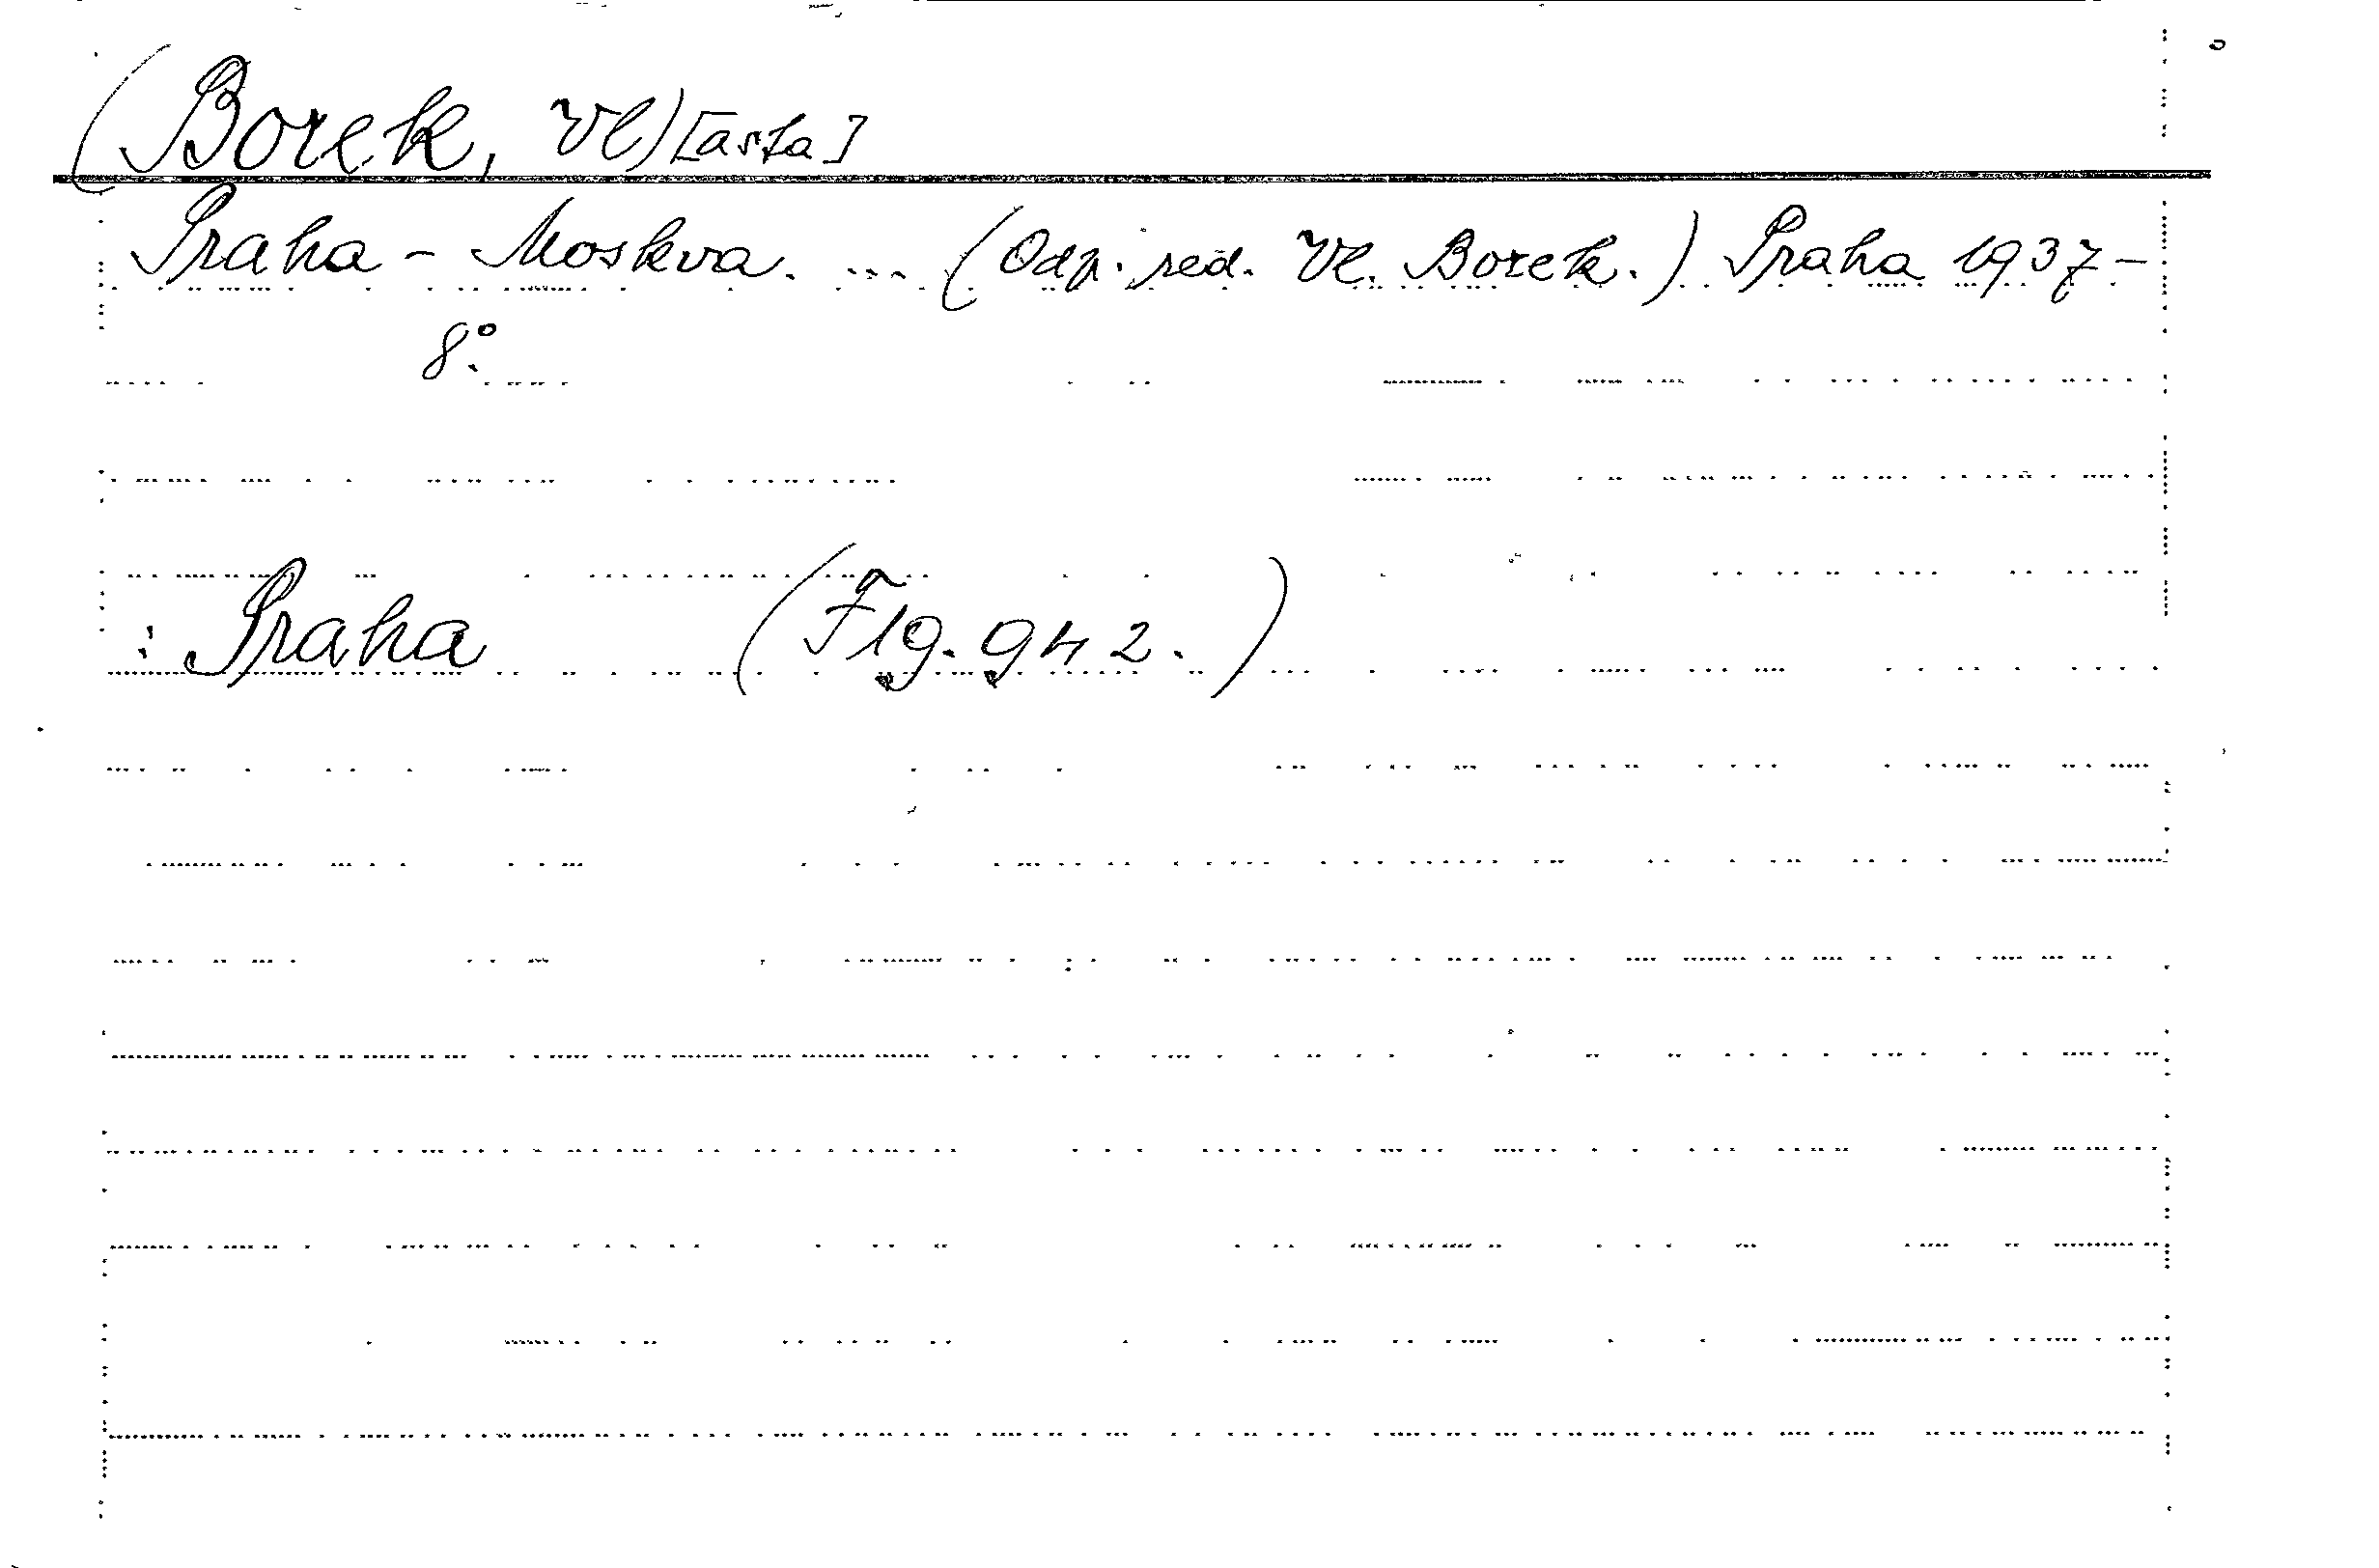 (Borek, Vl)[asta]
Praha - Moskva. ... (Odp. red. Vl. Borek.) Praha 1937-
8°.
: Praha (Flg. 942.)